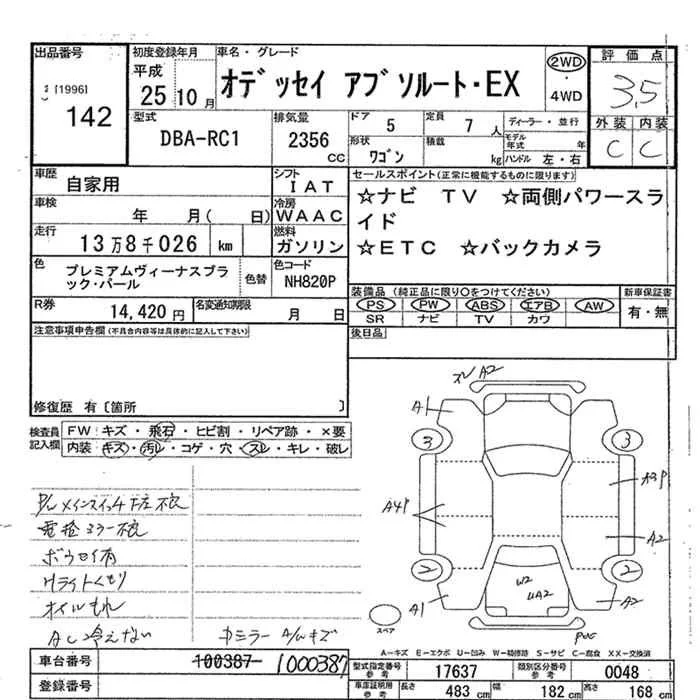 出品番号
[1996]
142
初度登録年月
平成
25 10 月
車名・グレード
オデッセイ アブソルート・EX
2WD
・
4WD
評価点
3.5
外装 内装
C C
型式
DBA-RC1
排気量
2356
cc
ドア
5
定員
7 人
形状
ワゴン
積載
kg
ディーラー・並行
モデル年式 年
ハンドル 左・右
車歴
自家用
シフト
IAT
車検
年 月( 日)
冷房
WAAC
走行
13万8千026 km
燃料
ガソリン
色
プレミアムヴィーナスブラック・パール
色替
色コード
NH820P
R券
14,420 円
名変通知期限
月 日
セールスポイント(正常に機能するものに限ります)
☆ナビ TV ☆両側パワースライド
☆ETC ☆バックカメラ
装備品 (純正品に限り○をつけてください)
PS PW ABS エアB AW
SR ナビ TV カワ
新車保証書
有・無
後日品
注意事項申告欄(不具合内容等は具体的に記入して下さい)
修復歴 有〔箇所 〕
検査員記入欄
FW キズ・飛石・ヒビ割・リペア跡・×要
内装 キズ・汚レ・コゲ・穴・スレ・キレ・破レ
P/Wメインスイッチ F左不良
電格ミラー不良
ボウセイ有
Hライトくもり
オイルもれ
AC冷えない
スレ A2
A1
3
3
A4P
A3P
A2
2
2
W2
UA2
A1
A2
スペア
A-キズ E-エクボ U-凹ミ W-補修跡 S-サビ C-腐食 XX-交換済
車台番号
100387 1000387
登録番号
型式指定番号
参考
17637
類別区分番号
参考
0048
車庫証明用
参考
長さ 483 cm
幅 182 cm
高さ 168 cm